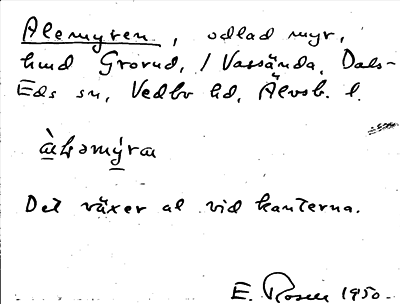 Alemyren, odlad myr,
hmd Grorud, 1 Vassända, Dals-
Eds sn, Vedbo hd, Älvsb. l.
Det växer al vid kanterna.
E. Rosell 1950.